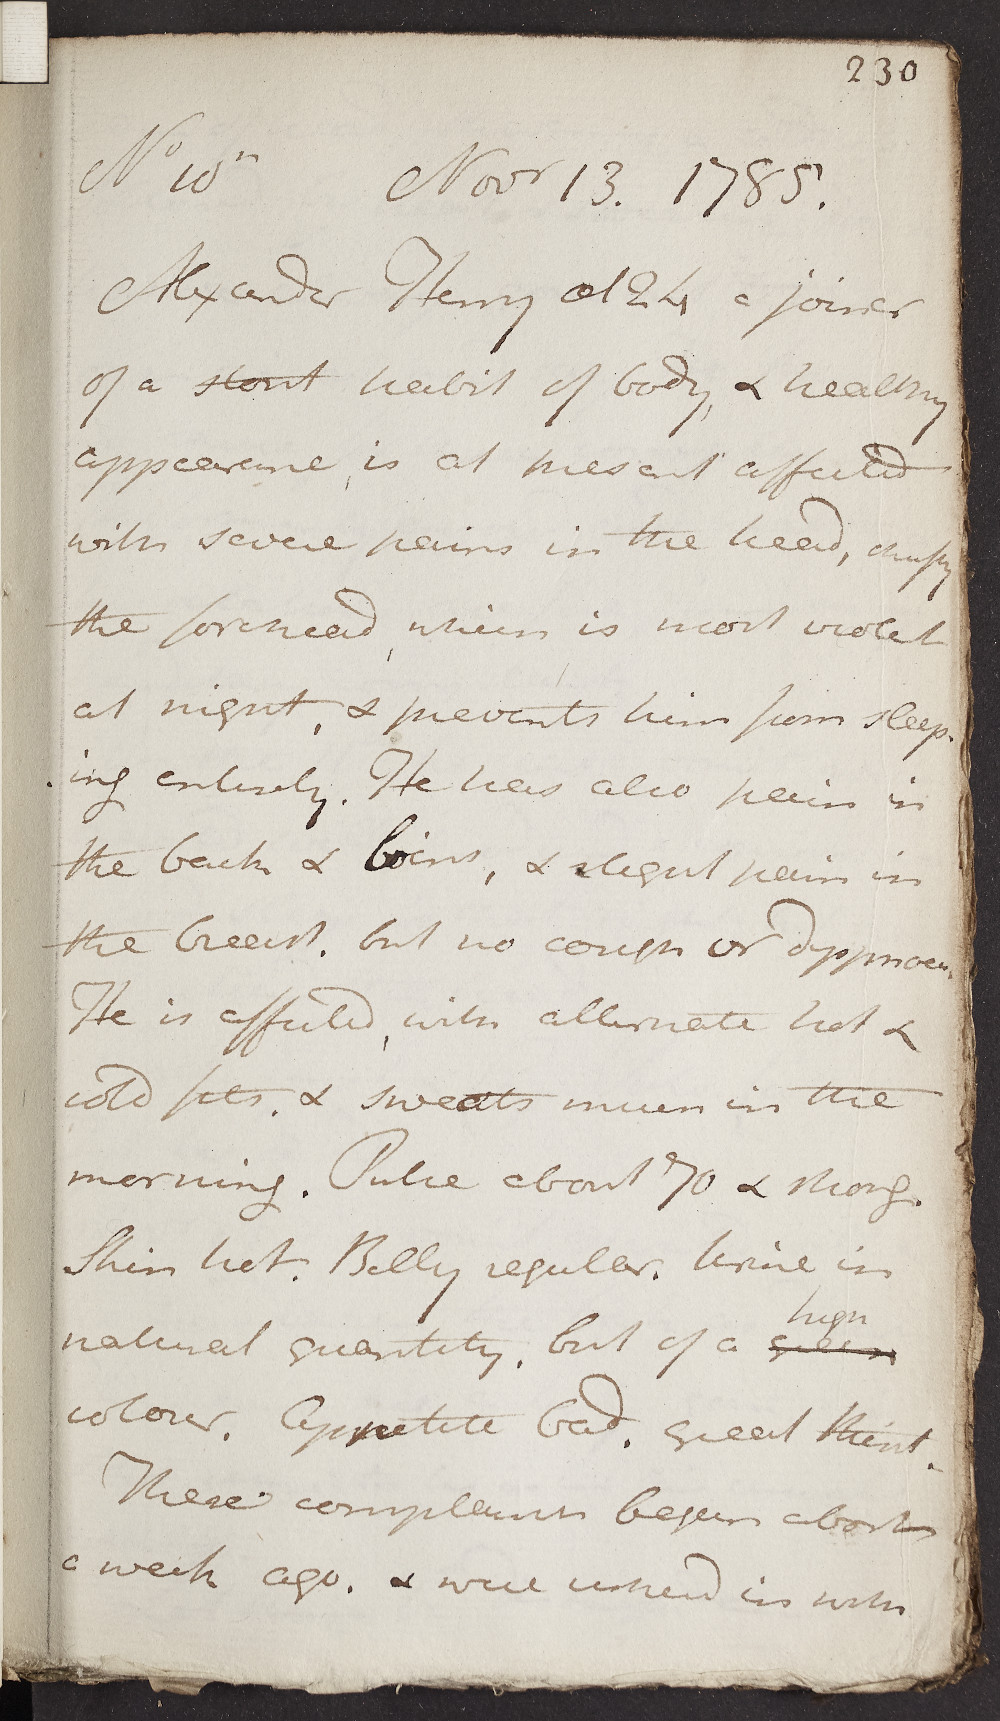 230
No 10n Novr 13. 1785.
Alexander Henry æt 24 a joiner
of a stout habit of body, & healthy
appearance, is at present affected
with severe pains in the head, chiefly
the forehead, which is most violent
at night, & prevents him from sleep-
ing entirely. He has also pain in
the back & loins, & slight pain in
the breast. but no cough or dyspnoea.
He is affected, with alternate hot &
cold fits. & sweats much in the
morning. Pulse about 70 & strong.
Skin hot. Belly regular. Urine in
high
natural quantity. but of a green
colour. Appetite bad. great thirst.
These complaints began about
a week ago. & were ushered in with